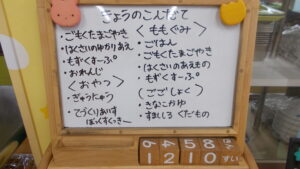 きょうのこんだて
・ごもくたまごやき
・はくさいのゆかりあえ
・もずくすーぷ
・おれんじ
〈おやつ〉
・ぎゅうにゅう
・てづくりあいす
ぼっくすくっきー
〈ももぐみ〉
・ごはん
・ごもくたまごやき
・はくさいのあえもの
・もずくすーぷ
(ごごしょく)
・きなこかゆ
・すましじる くだもの
0 4 5 8
1 2 1 0 すい